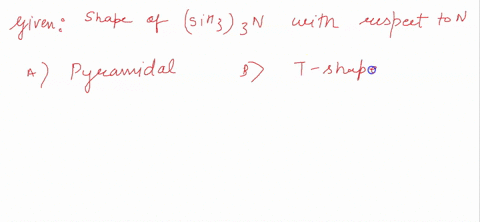 Given: Shape of (SiH3)3N with respect to N
A) Pyramidal B) T-shape